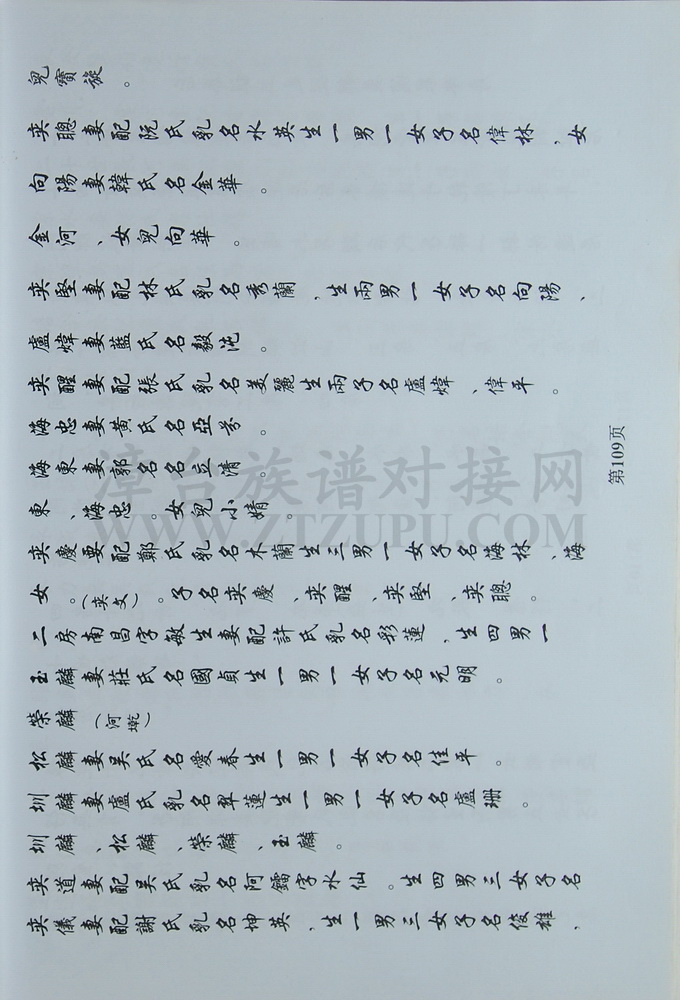 奕儀妻配謝氏乳名坤英、生一男三女子名俊雄、
奕道妻配吳氏乳名阿鐳字水仙。生四男三女子名
圳麟、松麟、榮麟、玉麟。
圳麟妻盧氏乳名翠蓮生一男一女子名盧珊。
松麟妻吳氏名愛春生一男一女子名佳平。
榮麟(河乾)
玉麟妻莊氏名國貞生一男一女子名元明。
二房南昌字敏生妻配許氏乳名彩蓮、生四男一
女。(奕文)。子名奕慶、奕醒、奕堅、奕聰。
奕慶妻配鄭氏乳名木蘭生三男一女子名海林、海
東、海忠。女兒小婧。
海東妻郭名名立清。
海忠妻黄氏名亞芬。
奕醒妻配張氏乳名美麗生兩子名盧煒、偉平。
盧煒妻藍氏名毅沌。
奕堅妻配林氏乳名秀蘭、生兩男一女子名向陽、
金河、女兒向華。
向陽妻韓氏名金華。
奕聰妻配阮氏乳名水英生一男一女子名偉林、女
兒寶旋。
第109页
漳台族谱对接网
WWW.ZTZUPU.COM